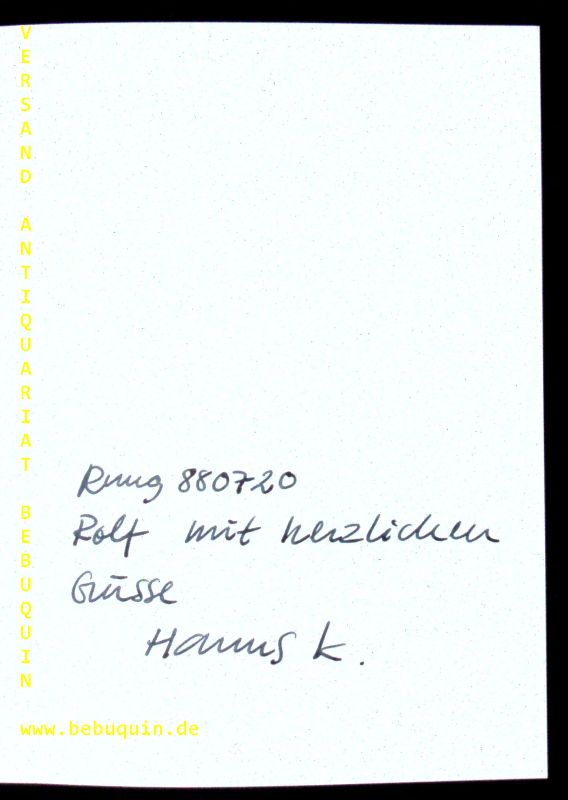 VERSAND ANTIQUARIAT BEBUQUIN
880720
Rolf mit herzlichen
Grüsse
Hanns K.
www.bebuquin.de